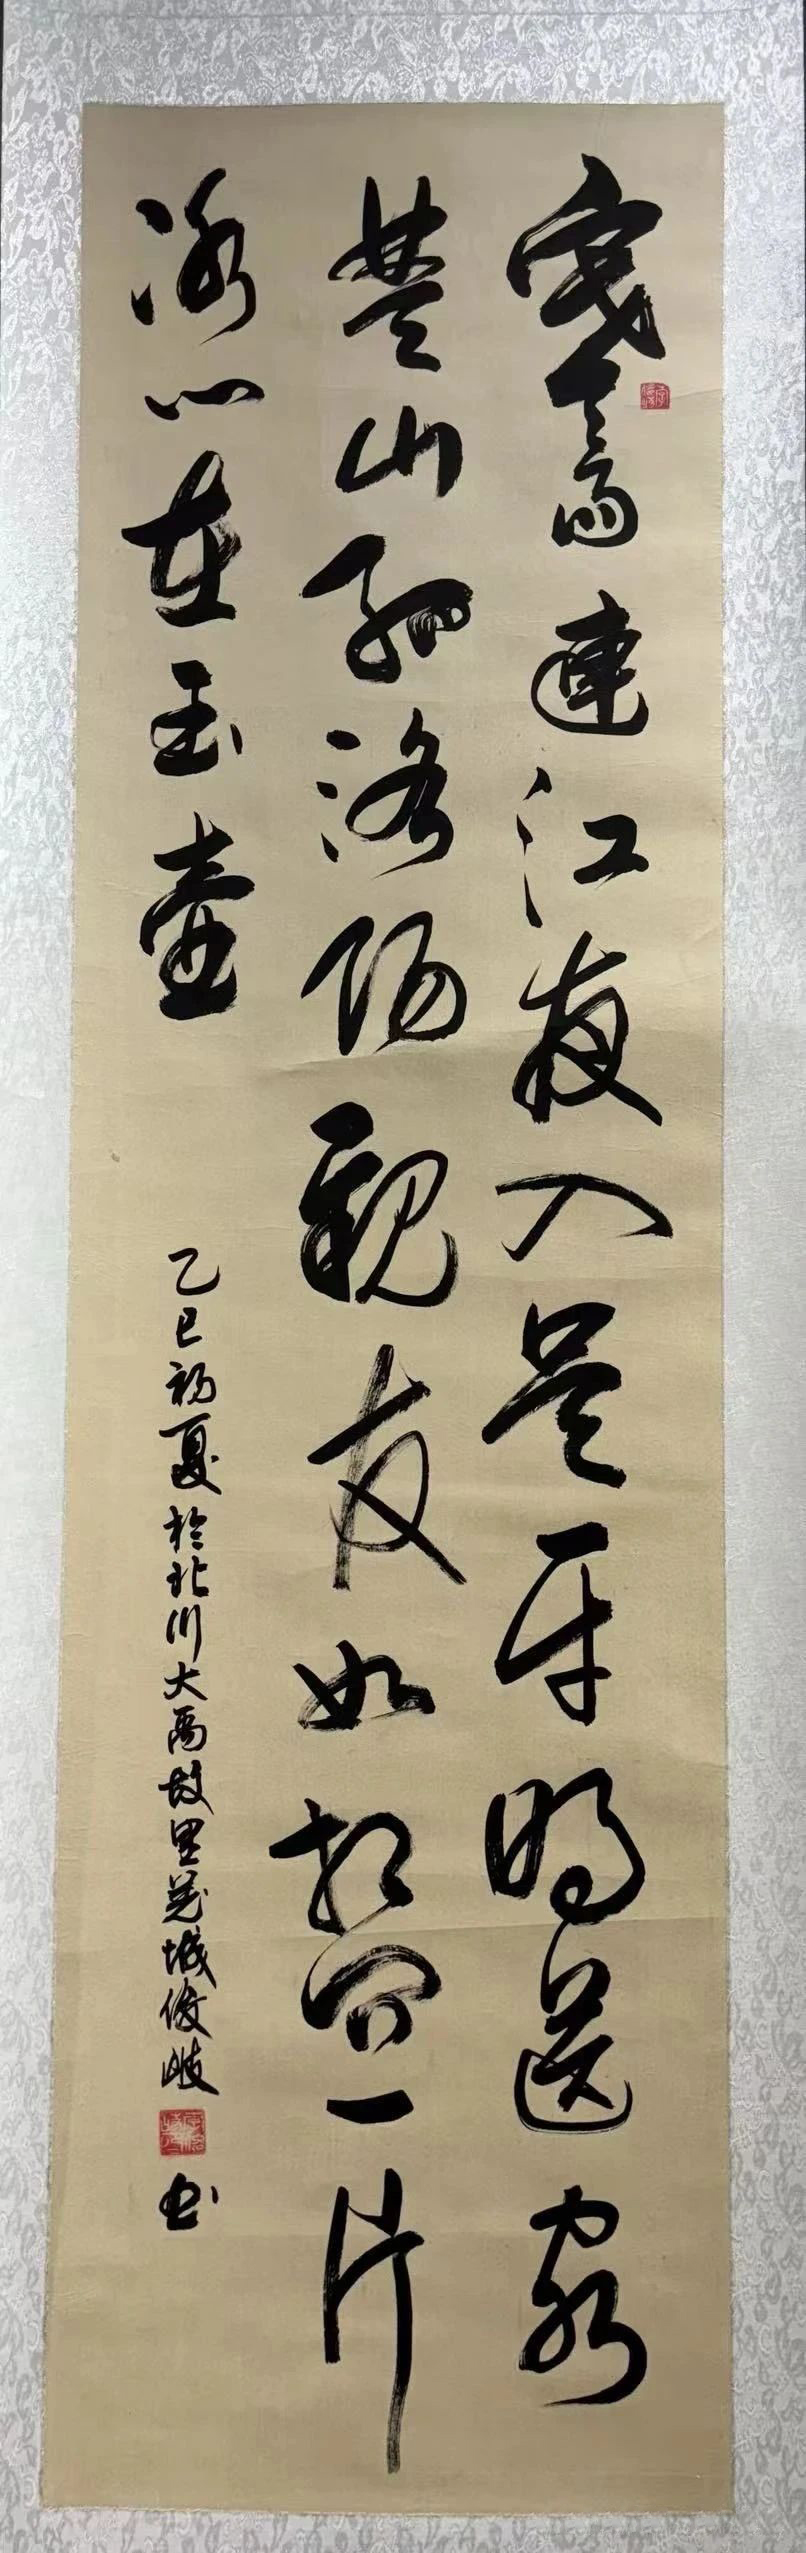 寒雨連江夜入吴平明送客
楚山孤洛阳親友如相问一片
冰心在玉壶
乙巳初夏於北川大禹故里羌城俊岐书